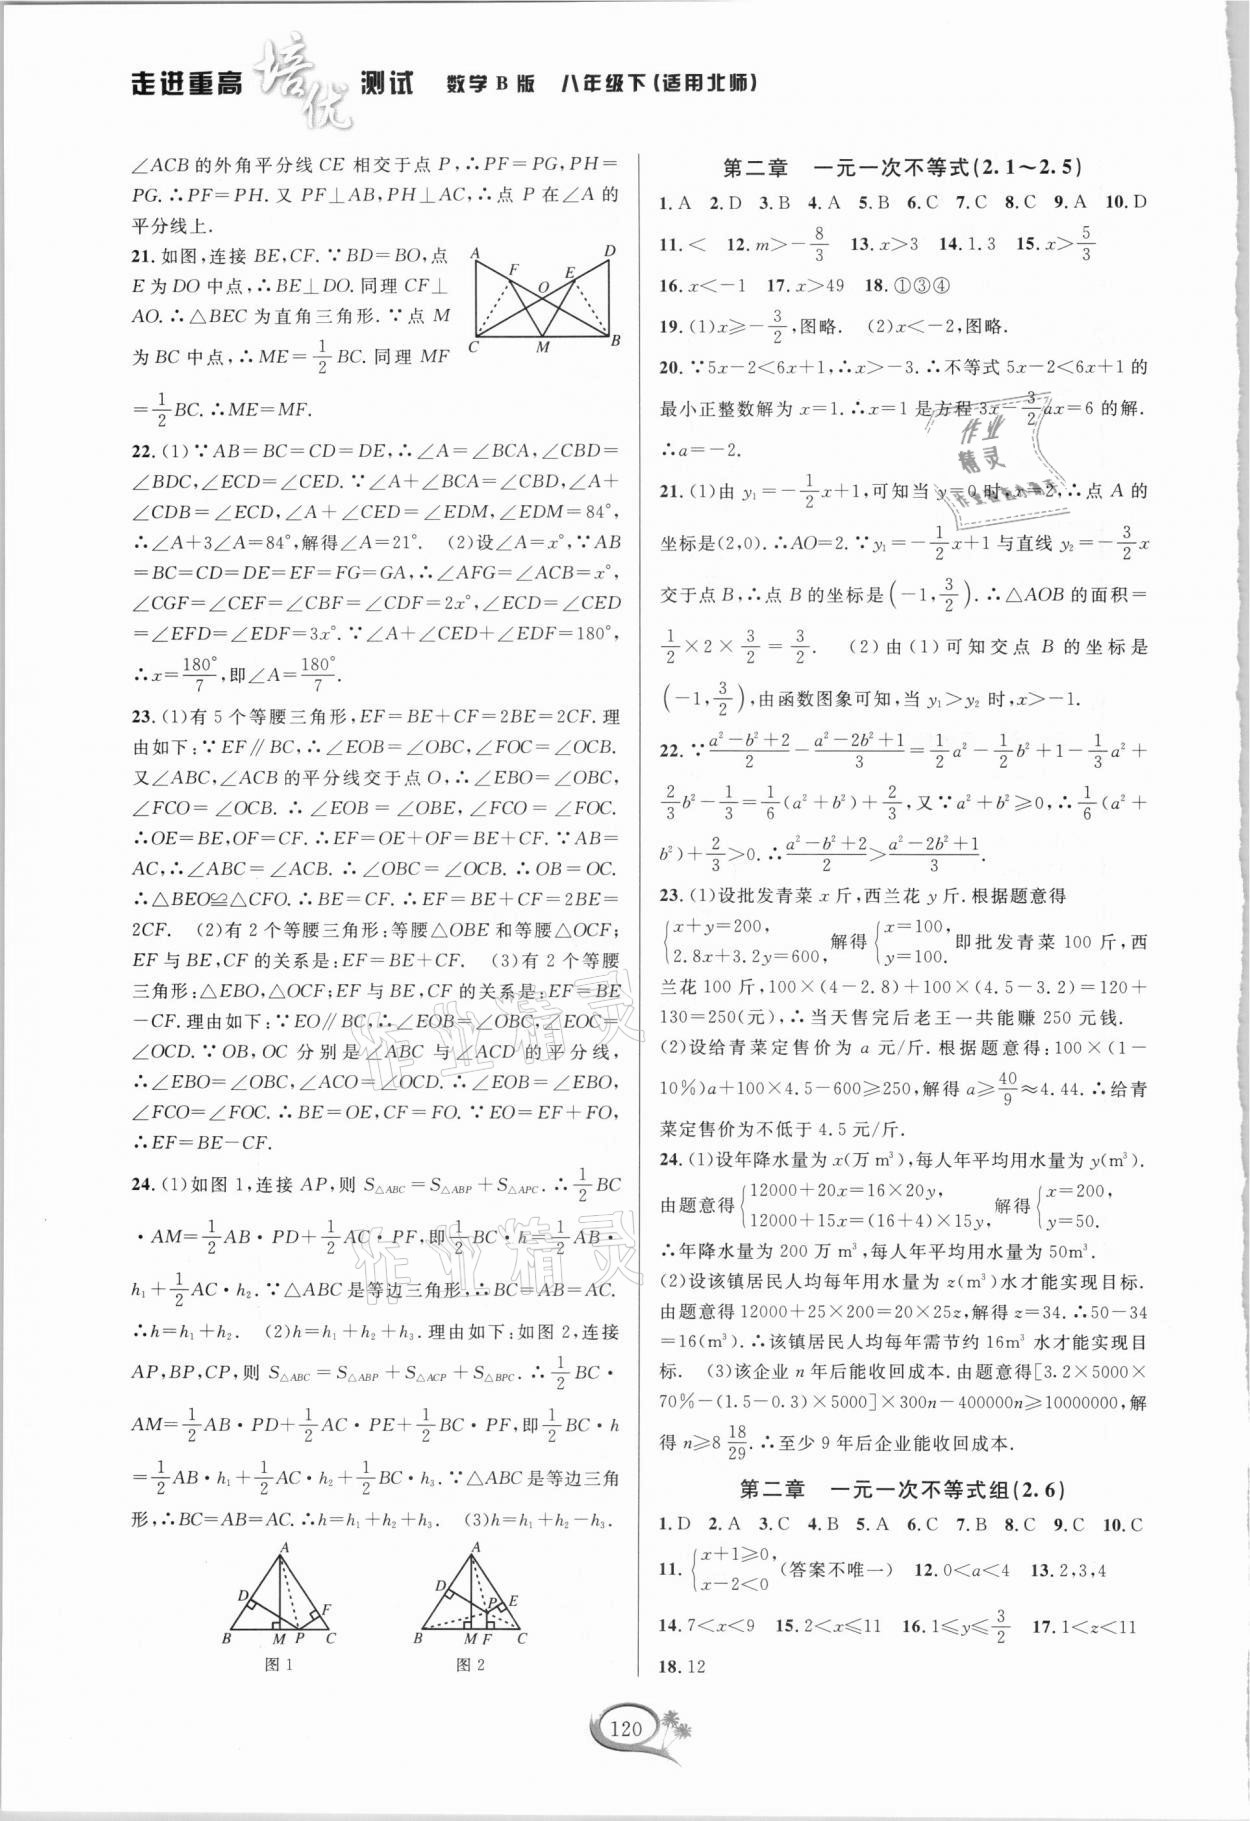 走进重高 培优 测试 数学B版 八年级下(适用北师)
∠ACB的外角平分线CE相交于点P,∴PF=PG,PH=
PG.∴PF=PH.又PF⊥AB,PH⊥AC,∴点P在∠A的
平分线上.
21.如图,连接BE,CF.∵BD=BO,点
E为DO中点,∴BE⊥DO.同理CF⊥
AO.∴△BEC为直角三角形.∵点M
为BC中点,∴ME=1/2BC.同理MF
=1/2BC.∴ME=MF.
A D F E O C M B
22.(1)∵AB=BC=CD=DE,∴∠A=∠BCA,∠CBD=
∠BDC,∠ECD=∠CED.∵∠A+∠BCA=∠CBD,∠A+
∠CDB=∠ECD,∠A+∠CED=∠EDM,∠EDM=84°,
∴∠A+3∠A=84°,解得∠A=21°. (2)设∠A=x°,∵AB
=BC=CD=DE=EF=FG=GA,∴∠AFG=∠ACB=x°,
∠CGF=∠CEF=∠CBF=∠CDF=2x°,∠ECD=∠CED
=∠EFD=∠EDF=3x°.∵∠A+∠CED+∠EDF=180°,
∴x=180°/7,即∠A=180°/7.
23.(1)有5个等腰三角形,EF=BE+CF=2BE=2CF.理
由如下:∵EF∥BC,∴∠EOB=∠OBC,∠FOC=∠OCB.
又∠ABC,∠ACB的平分线交于点O,∴∠EBO=∠OBC,
∠FCO=∠OCB.∴∠EOB=∠OBE,∠FCO=∠FOC.
∴OE=BE,OF=CF.∴EF=OE+OF=BE+CF.∵AB=
AC,∴∠ABC=∠ACB.∴∠OBC=∠OCB.∴OB=OC.
∴△BEO≌△CFO.∴BE=CF.∴EF=BE+CF=2BE=
2CF. (2)有2个等腰三角形:等腰△OBE和等腰△OCF;
EF与BE,CF的关系是:EF=BE+CF. (3)有2个等腰
三角形:△EBO,△OCF;EF与BE,CF的关系是:EF=BE
-CF.理由如下:∵EO∥BC,∴∠EOB=∠OBC,∠EOC=
∠OCD.∵OB,OC分别是∠ABC与∠ACD的平分线,
∴∠EBO=∠OBC,∠ACO=∠OCD.∴∠EOB=∠EBO,
∠FCO=∠FOC.∴BE=OE,CF=FO.∵EO=EF+FO,
∴EF=BE-CF.
24.(1)如图1,连接AP,则S△ABC=S△ABP+S△APC.∴1/2BC
·AM=1/2AB·PD+1/2AC·PF,即1/2BC·h=1/2AB·
h₁+1/2AC·h₂.∵△ABC是等边三角形,∴BC=AB=AC.
∴h=h₁+h₂. (2)h=h₁+h₂+h₃.理由如下:如图2,连接
AP,BP,CP,则S△ABC=S△ABP+S△ACP+S△BPC.∴1/2BC·
AM=1/2AB·PD+1/2AC·PE+1/2BC·PF,即1/2BC·h
=1/2AB·h₁+1/2AC·h₂+1/2BC·h₃.∵△ABC是等边三角
形,∴BC=AB=AC.∴h=h₁+h₂+h₃. (3)h=h₁+h₂-h₃.
A D F B M P C
图1
A D P E B M F C
图2
第二章 一元一次不等式(2.1~2.5)
1.A 2.D 3.B 4.A 5.B 6.C 7.C 8.C 9.A 10.D
11.< 12.m>-8/3 13.x>3 14.1.3 15.x>5/3
16.x<-1 17.x>49 18.①③④
19.(1)x≥-3/2,图略. (2)x<-2,图略.
20.∵5x-2<6x+1,∴x>-3.∴不等式5x-2<6x+1的
最小正整数解为x=1.∴x=1是方程3x-3/2ax=6的解.
∴a=-2.
21.(1)由y₁=-1/2x+1,可知当y=0时,x=2,∴点A的
坐标是(2,0).∴AO=2.∵y₁=-1/2x+1与直线y₂=-3/2x
交于点B,∴点B的坐标是(-1,3/2).∴△AOB的面积=
1/2×2×3/2=3/2. (2)由(1)可知交点B的坐标是
(-1,3/2),由函数图象可知,当y₁>y₂时,x>-1.
22.∵(a²-b²+2)/2-(a²-2b²+1)/3=1/2a²-1/2b²+1-1/3a²+
2/3b²-1/3=1/6(a²+b²)+2/3,又∵a²+b²≥0,∴1/6(a²+
b²)+2/3>0.∴(a²-b²+2)/2>(a²-2b²+1)/3.
23.(1)设批发青菜x斤,西兰花y斤.根据题意得
{x+y=200, 2.8x+3.2y=600, 解得{x=100, y=100. 即批发青菜100斤,西
兰花100斤,100×(4-2.8)+100×(4.5-3.2)=120+
130=250(元),∴当天售完后老王一共能赚250元钱.
(2)设给青菜定售价为a元/斤.根据题意得:100×(1-
10%)a+100×4.5-600≥250,解得a≥40/9≈4.44.∴给青
菜定售价为不低于4.5元/斤.
24.(1)设年降水量为x(万m³),每人年平均用水量为y(m³).
由题意得{12000+20x=16×20y, 12000+15x=(16+4)×15y, 解得{x=200, y=50.
∴年降水量为200万m³,每人年平均用水量为50m³.
(2)设该镇居民人均每年用水量为z(m³)水才能实现目标.
由题意得12000+25×200=20×25z,解得z=34.∴50-34
=16(m³).∴该镇居民人均每年需节约16m³水才能实现目
标. (3)该企业n年后能收回成本.由题意得[3.2×5000×
70%-(1.5-0.3)×5000]×300n-400000n≥10000000,解
得n≥8 18/29.∴至少9年后企业能收回成本.
第二章 一元一次不等式组(2.6)
1.D 2.A 3.C 4.B 5.A 6.C 7.B 8.C 9.C 10.C
11.{x+1≥0, x-2<0 (答案不唯一) 12.0<a<4 13.2,3,4
14.7<x<9 15.2<x≤11 16.1≤y≤3/2 17.1<z<11
18.12
120
作业精灵
作业精灵
作业精灵